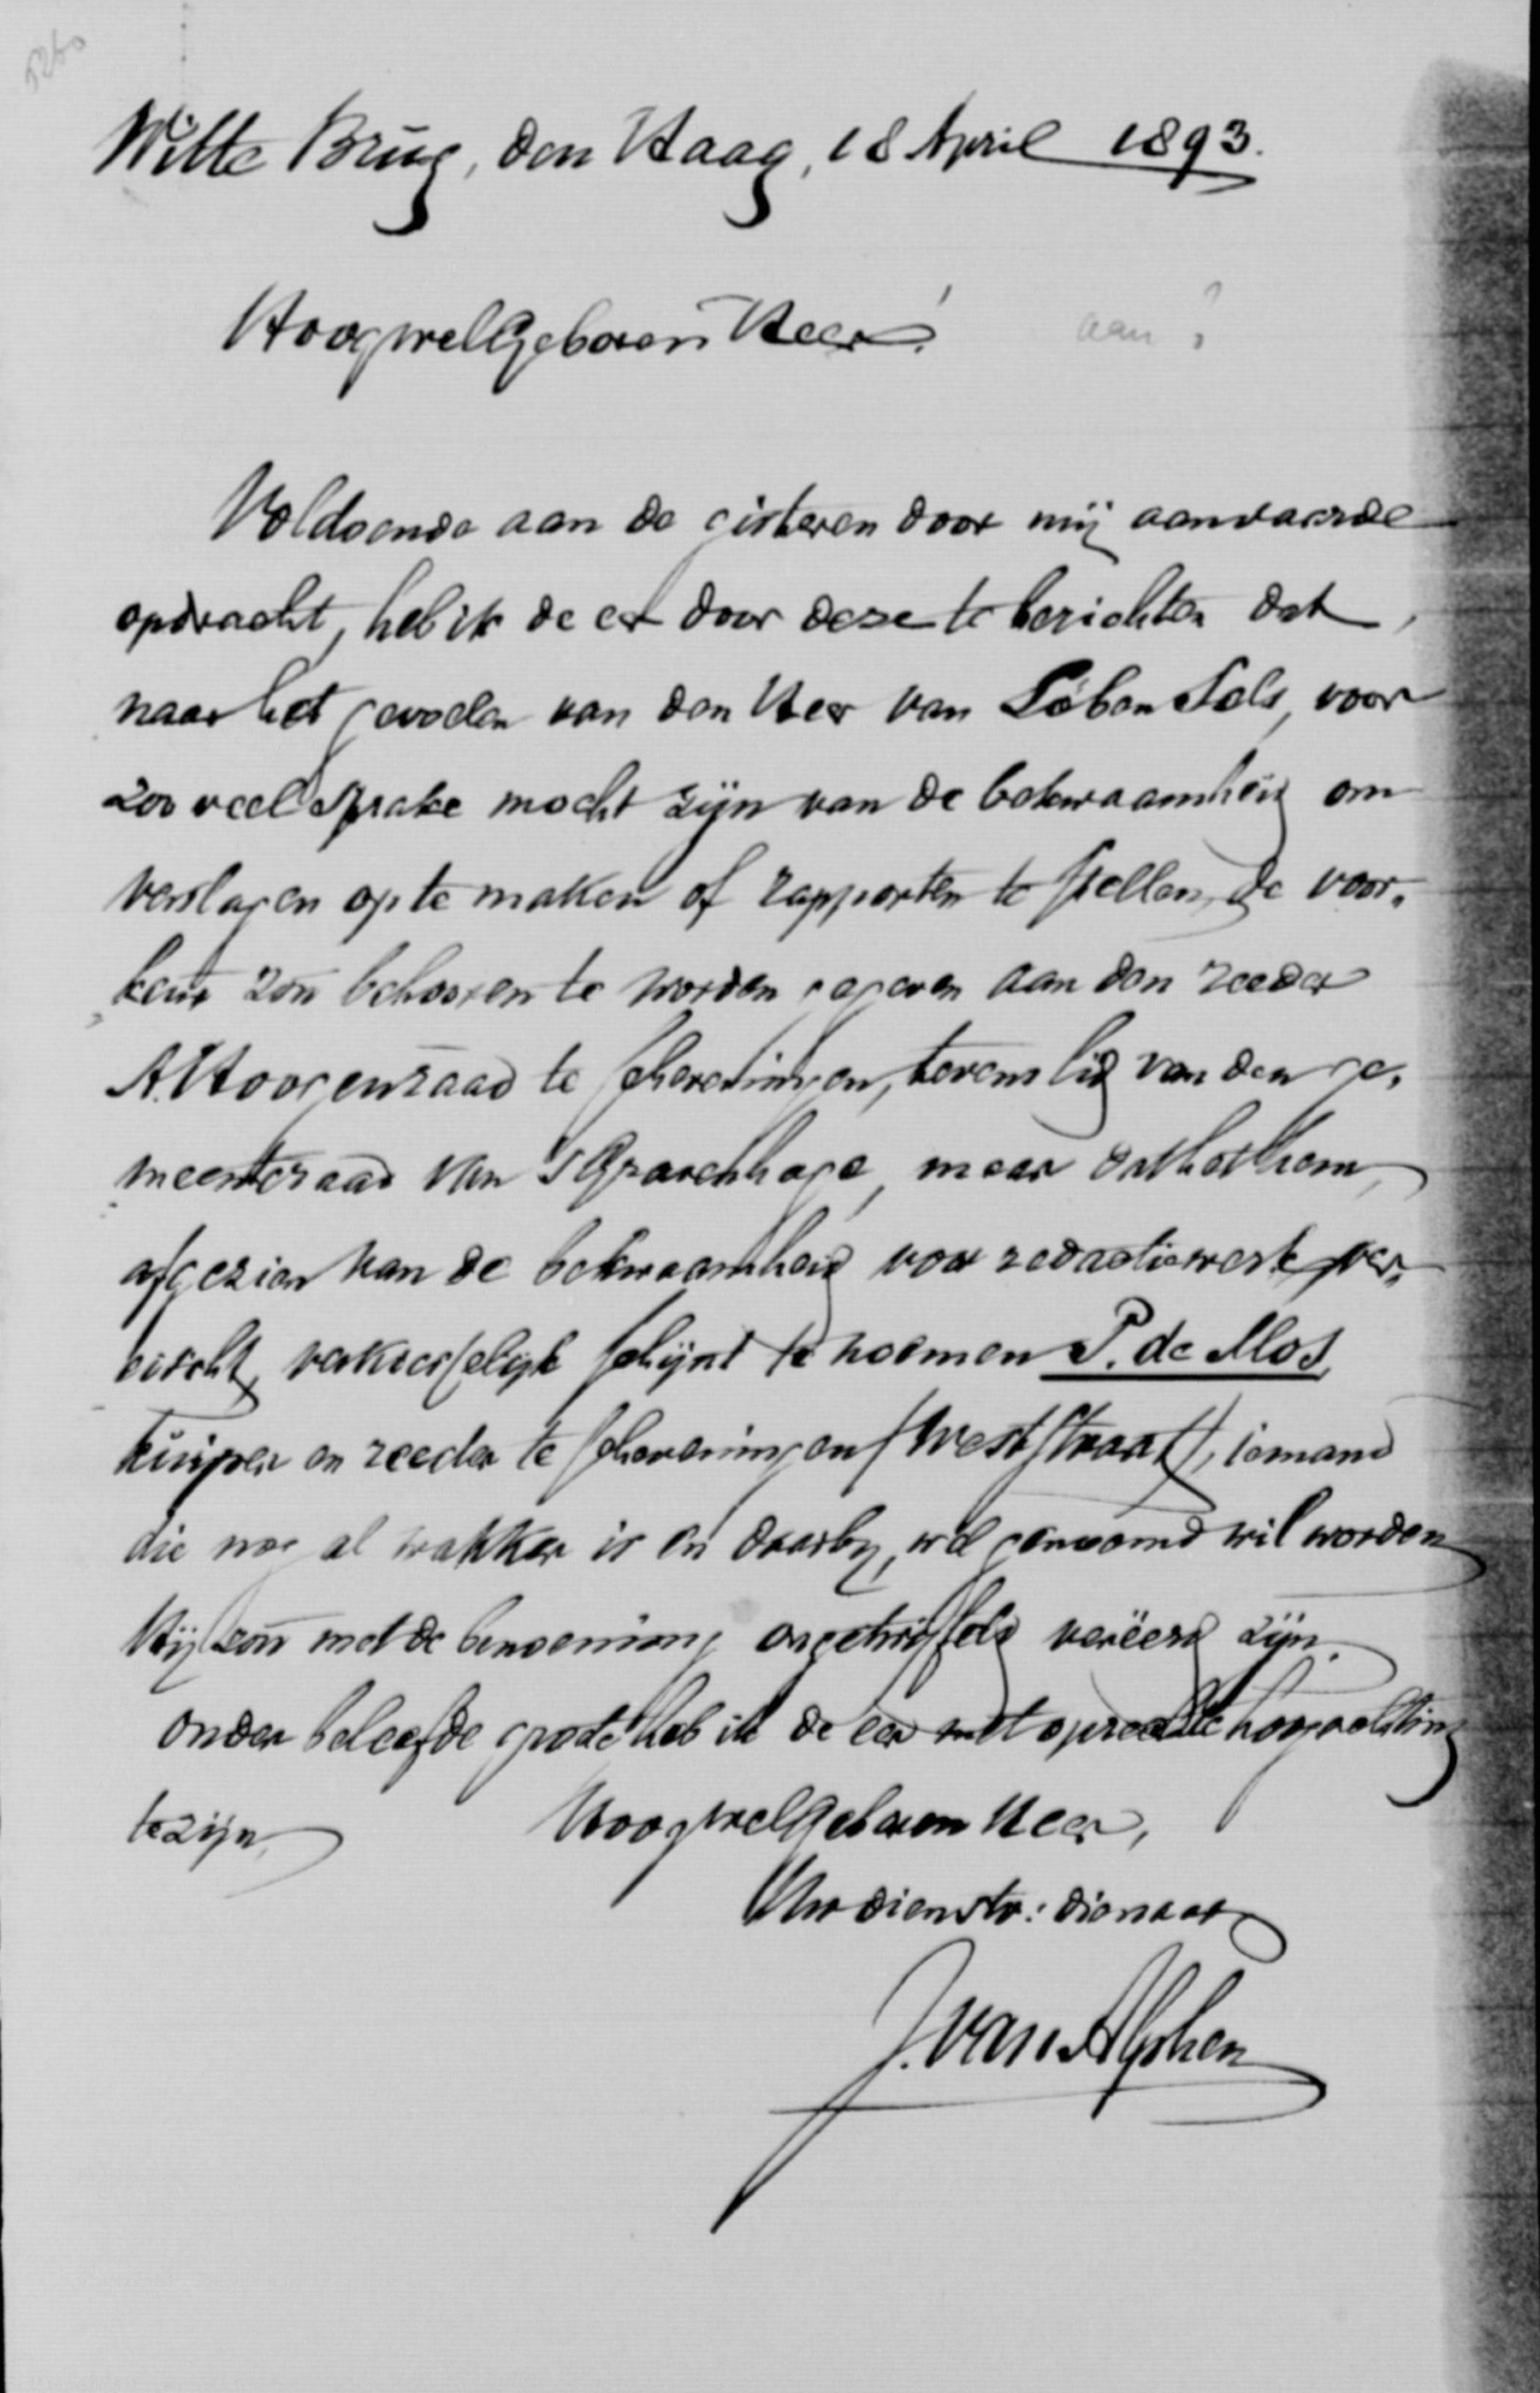 5260
Witte Brug, den Haag, 18 April 1893.
HoogwelGeboren Heer!
aan?
Voldoende aan de gisteren door mij aanvaarde
opdracht, heb ik de eer door deze te berichten dat,
naar het gevoelen van den Heer van Löben Sels, voor
zooveel sprake mocht zijn van de bekwaamheid om
verslagen op te maken of rapporten te stellen, de voor-
keur zou behooren te worden gegeven aan den reeder
A. Hoogenraad te Scheveningen, tevens lid van den ge-
meenteraad van 's Gravenhage, maar dat het hem,
afgezien van de bekwaamheid voor redactiewerk ver-
eischt, verkieslijk schijnt te noemen P. de Mos,
kuiper en reeder te Scheveningen (Weststraat), iemand
die nog al wakker is en daarby, wel genoemd wil worden
Hij zou met de benoeming ongetwijfeld vereerd zijn.
Onder beleefde groete heb ik de eer met oprechte hoogachting
te zijn,
HoogwelGeboren Heer,
Uw dienstw: dienaar
J. van Alphen